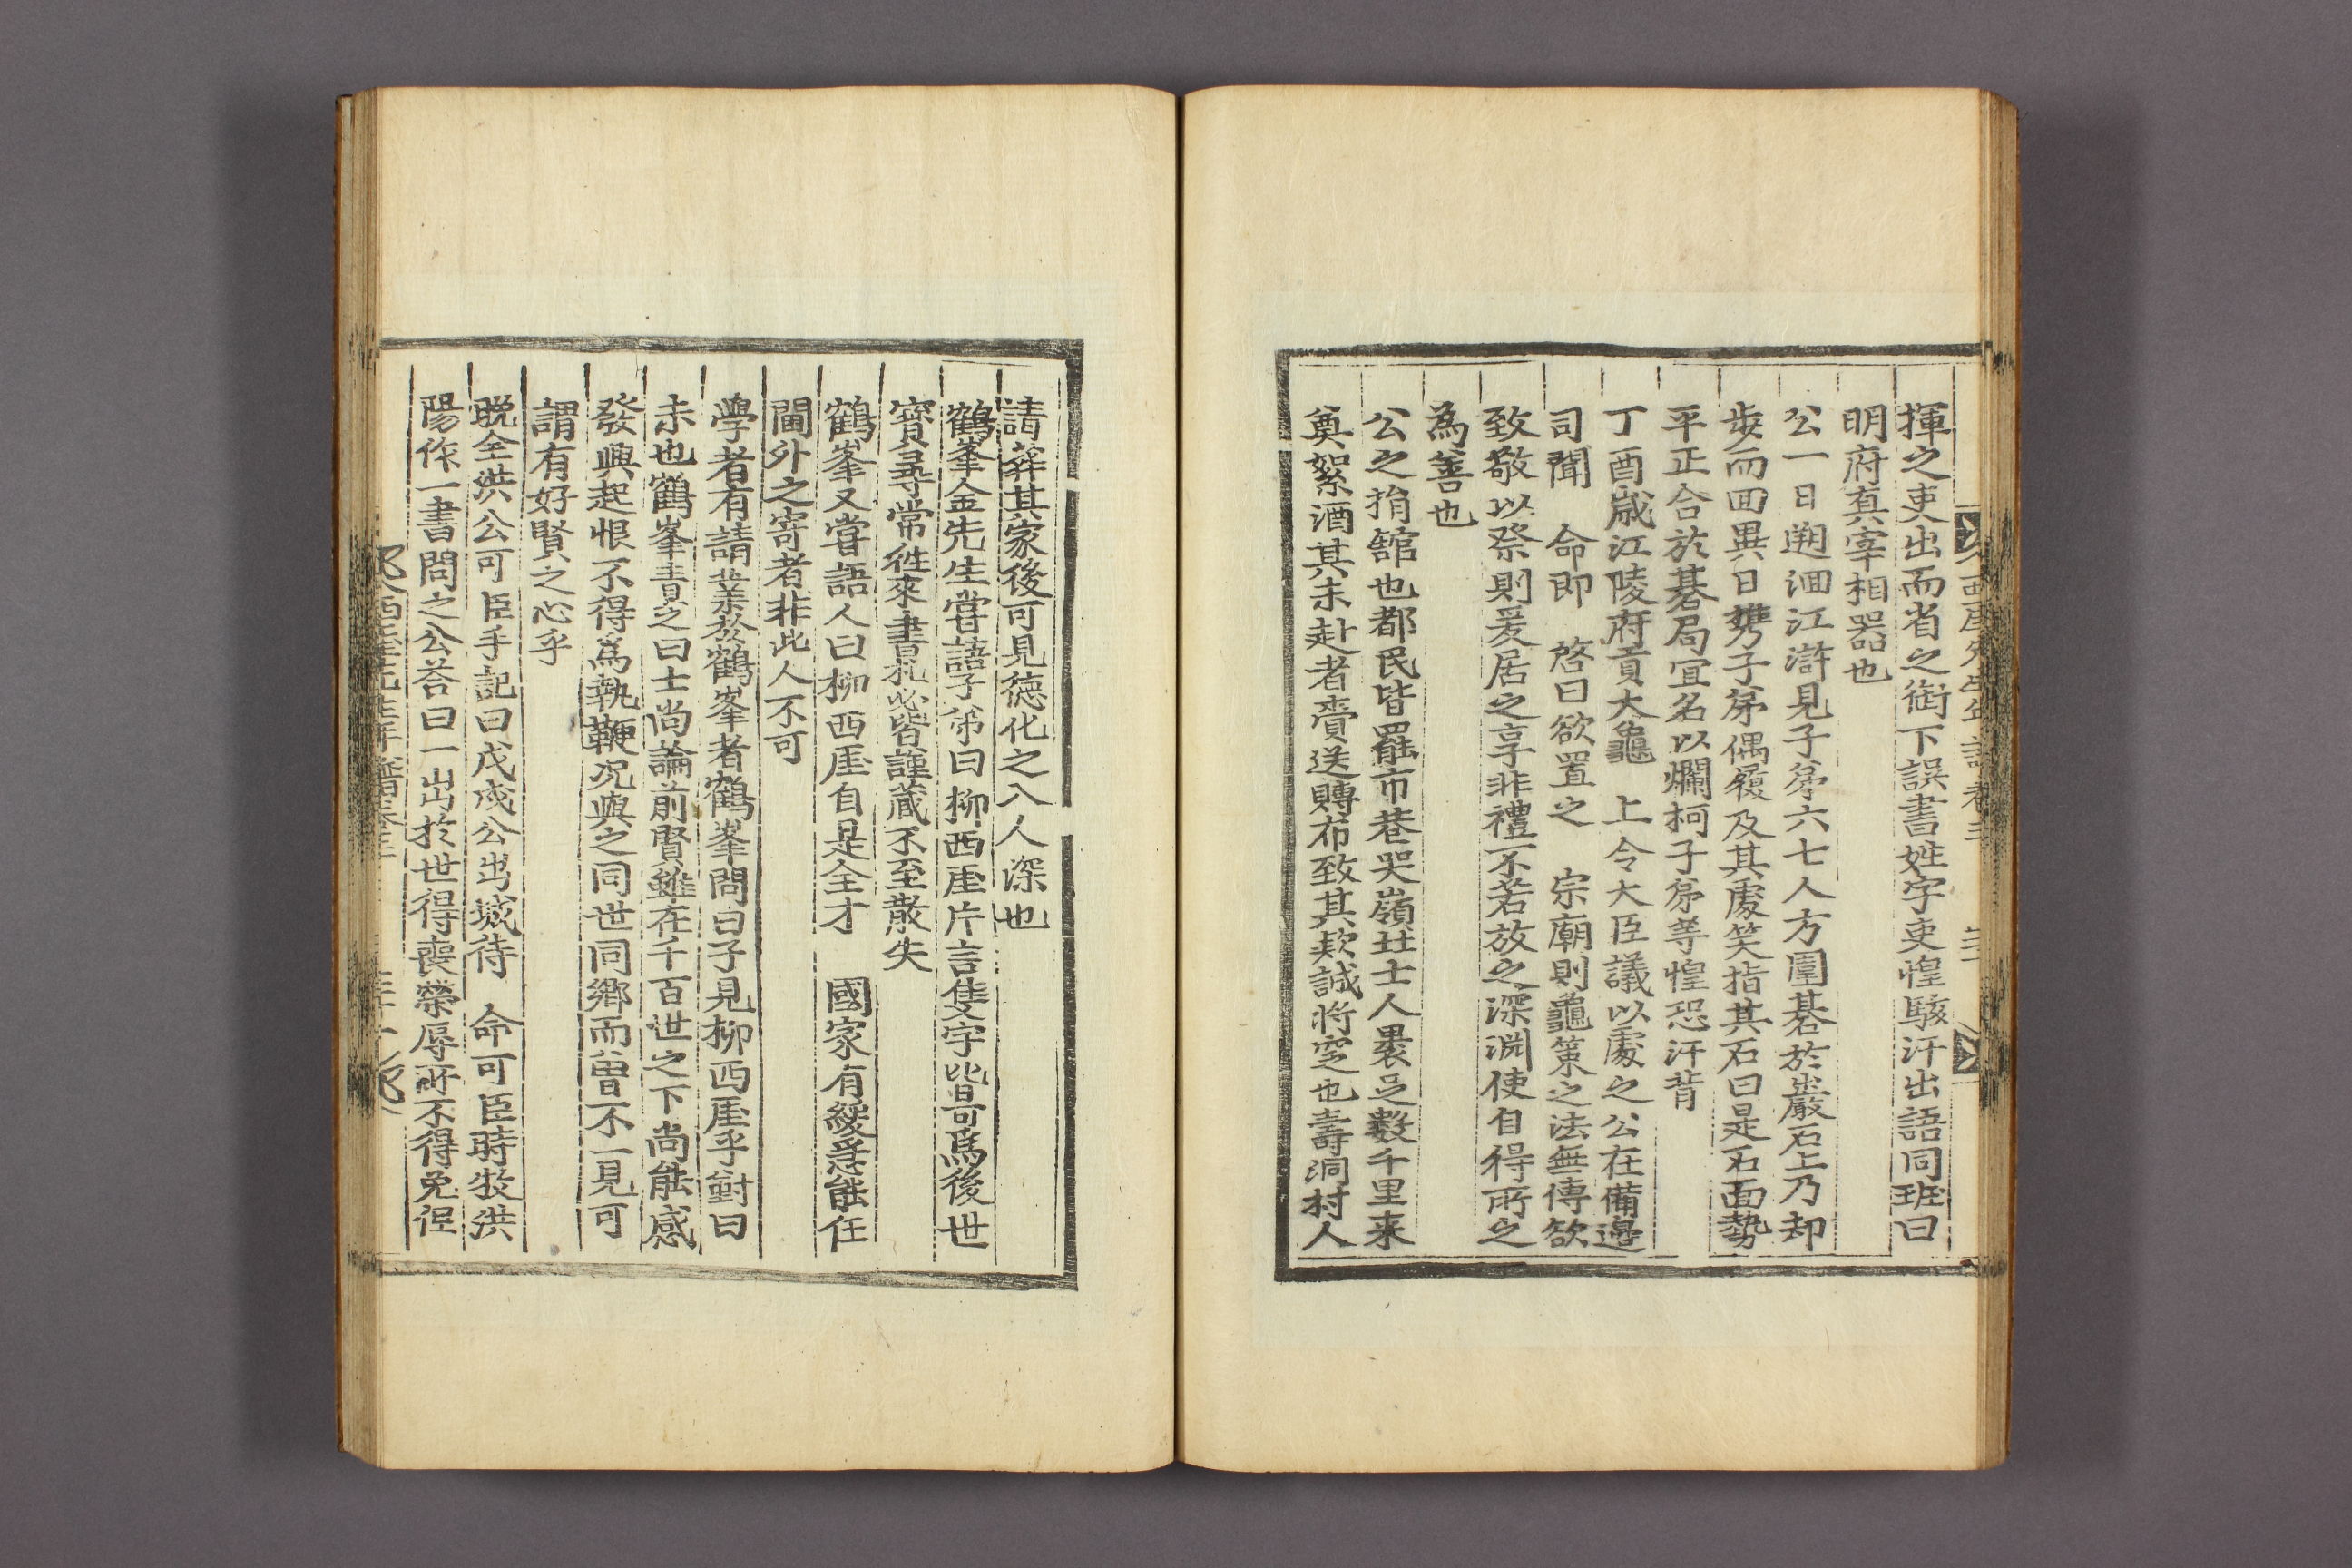 揮之吏出而省之銜下誤書姓字吏惶駭汗出語同班曰
明府真宰相器也
公一日遡洄江滸見子弟六七人方圍碁於巖石上乃却
步而回異日携子弟偶履及其處笑指其石曰是石面勢
平正合於碁局宜名以爛柯子弟等惶恐汗背
丁酉歲江陵府貢大龜　上令大臣議以處之公在備邊
司聞　命即　啓曰欲置之　宗廟則龜策之法無傳欲
致敬以祭則爰居之享非禮不若放之深淵使自得所之
為善也
公之捐舘也都民皆罷市巷哭嶺士人裹足數千里来
奠絮酒其未赴者賷送賻布致其款誠將窆也壽洞村人
請葬其家後可見德化之入人深也
鶴峯金先生甞語子弟曰柳西厓片言隻字皆可爲後世
寳尋常徃來書札必皆謹藏不至散失
鶴峯又甞語人曰柳西厓自是全才　國家有緩急能任
閫外之寄者非此人不可
學者有請業於鶴峯者鶴峯問曰子見柳西厓乎對曰
未也鶴峯責之曰士尚論前賢雖在千百世之下尚能感
發興起恨不得爲執鞭况與之同世同鄉而曾不一見可
謂有好賢之心乎
晩全洪公可臣手記曰戊戌公出城待　命可臣時牧洪
陽作一書問之公答曰一出於世得喪榮辱所不得免但
西厓先生年譜卷三